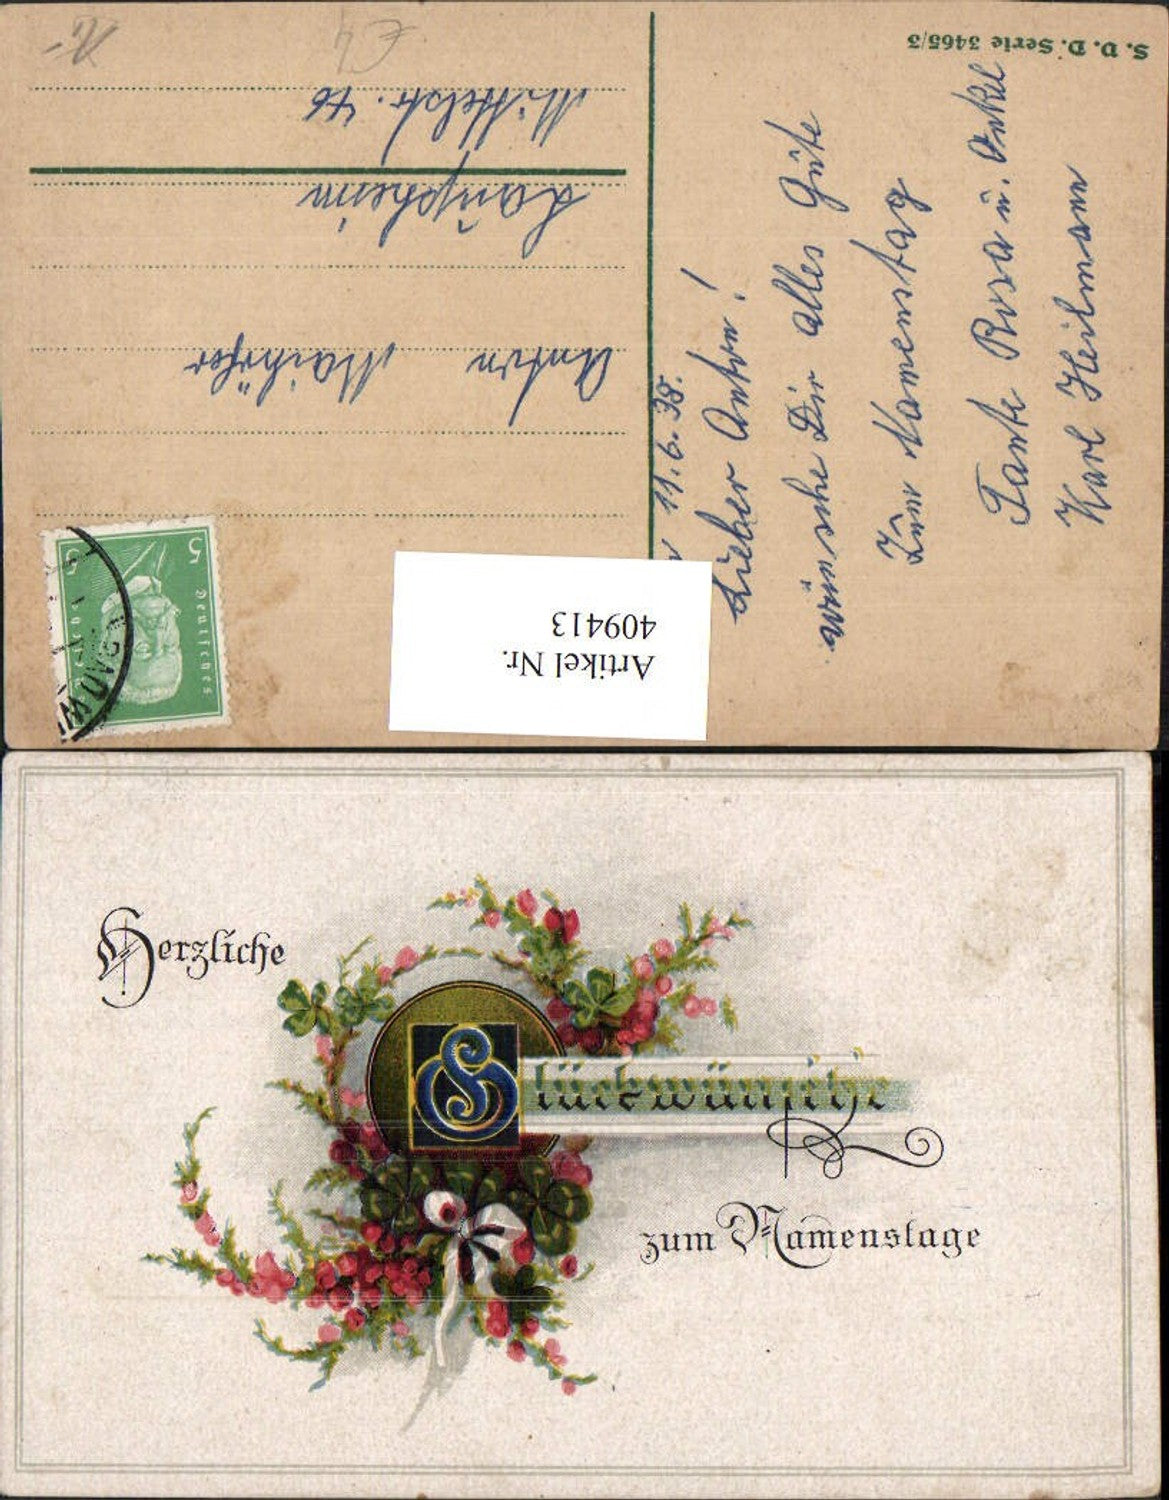 S. V. D. Serie 3465/3
11.6.38.
Lieber Anton!
wünsche Dir alles Gute
Zum Namenstag
Tante Rosa u. Onkel
Karl Heilmann
5 5
Deutsches
Anton Maihöfer
Laupheim
Mittelstr. 46
Artikel Nr.
409413
Herzliche
Glückwünsche
zum Namenstage